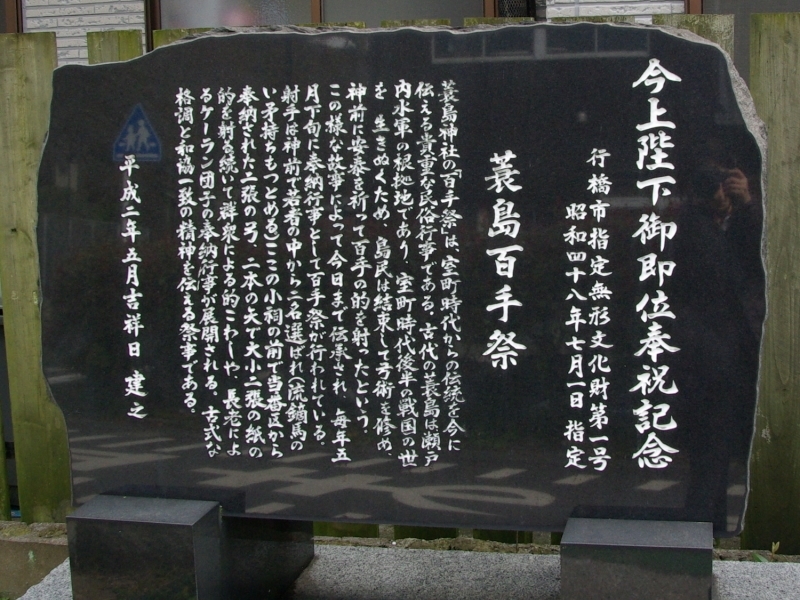 今上陛下御即位奉祝記念
行橋市指定無形文化財第一号
昭和四十八年七月一日 指定
蓑島百手祭
蓑島神社の「百手祭」は、室町時代からの伝統を今に
伝える貴重な民俗行事である。古代の蓑島は瀬戸
内水軍の根拠地であり、室町時代後半の戦国の世
を 生きぬくため、島民は結束して弓術を修め、
神前に安泰を祈って百手の的を射ったという。
この様な故事によって今日まで伝承され、毎年五
月下旬に奉納行事として百手祭が行われている。
射手は神前で若者の中から二名選ばれ(流鏑馬の
い矛持ちもつとめる)ここの小祠の前で当番区から
奉納された二張の弓、二本の矢で大小二張の紙の
的を射る続いて群衆による的こわしや、長老によ
るケーラン団子の奉納行事が展開される。古式な
格調と和協一致の精神を伝える祭事である。
平成二年五月吉祥日 建之